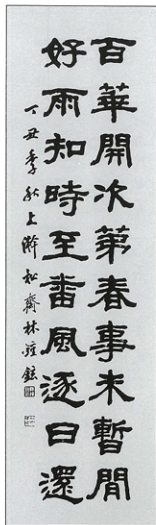 百華開次第春事未暫閒
好雨知時至番風逐日還
丁丑季秋上澣松齋林